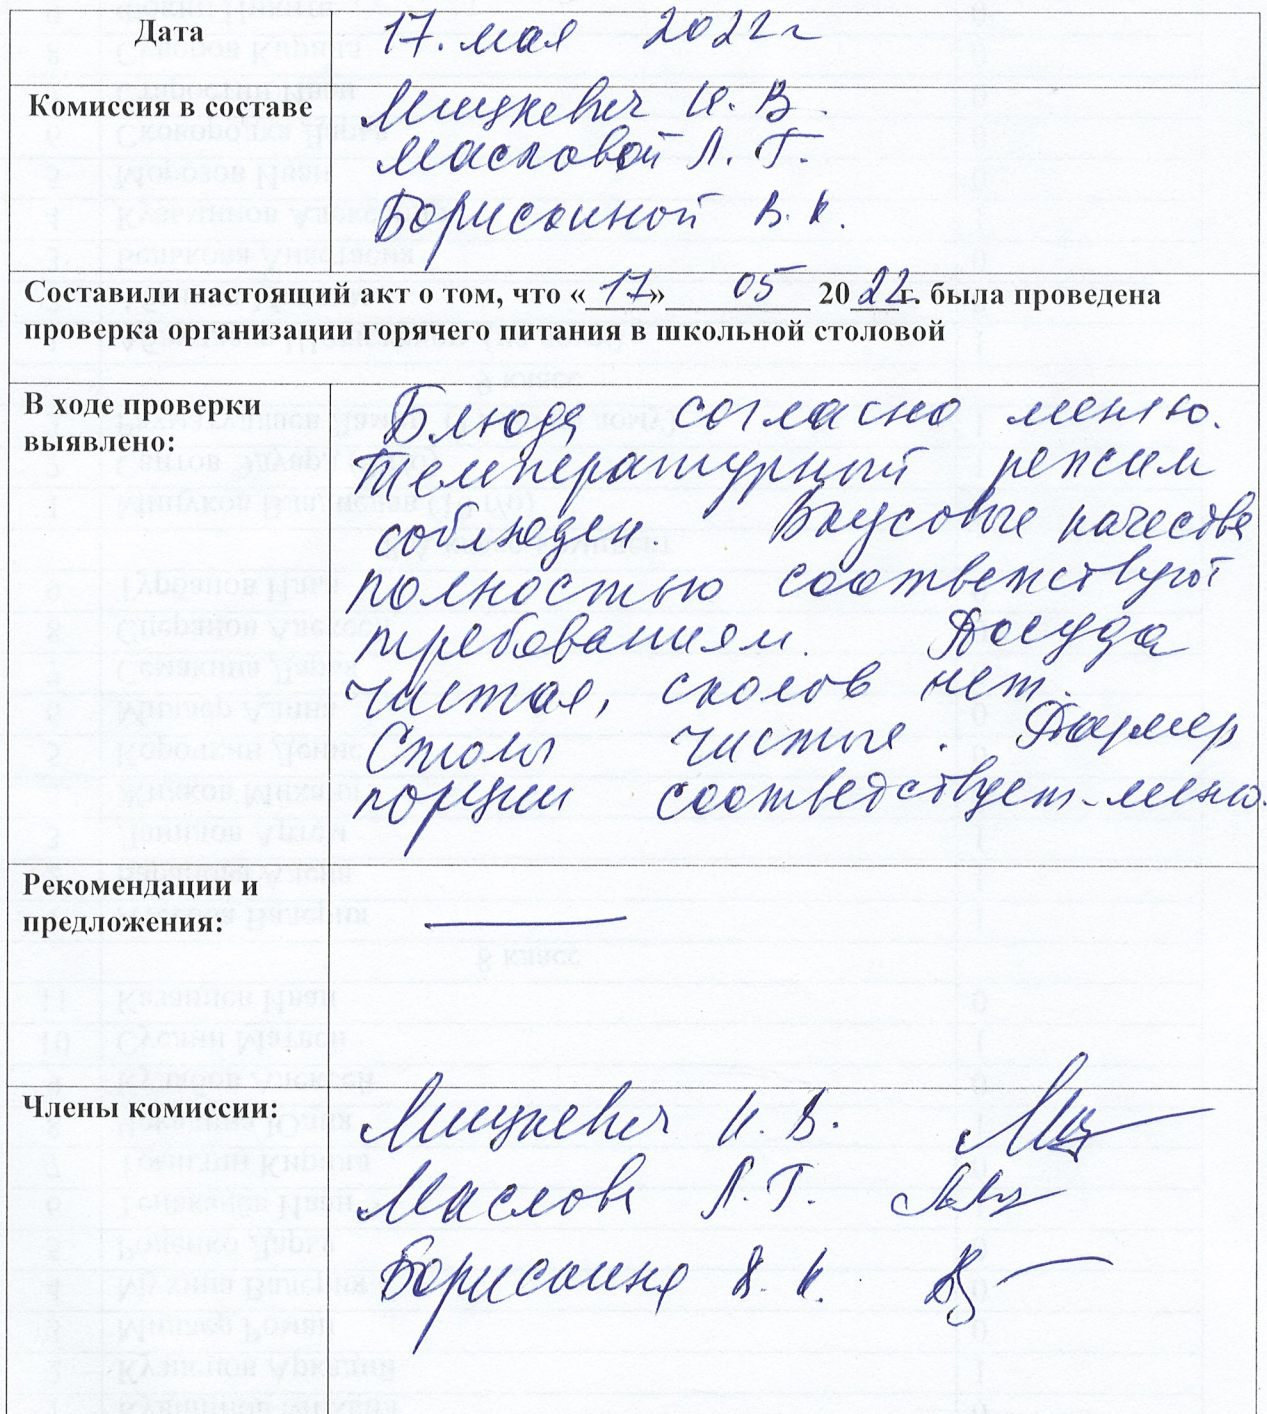 Дата 17. мая 2022 г
Комиссия в составе Мицкевич И. В.
Масловой Л. Г.
Борисоиной В. И.
Составили настоящий акт о том, что «17» 05 2022г. была проведена
проверка организации горячего питания в школьной столовой
В ходе проверки Блюда согласно меню.
выявлено: Температурный режим
соблюден. Вкусовые качества
полностью соответствуют
требованиям. Посуда
чистая, сколов нет.
Столы чистые. Размер
порции соотведствует меню.
Рекомендации и
предложения: —
Члены комиссии: Мицкевич И. В.
Маслова Л. Г.
Борисоина В. И.